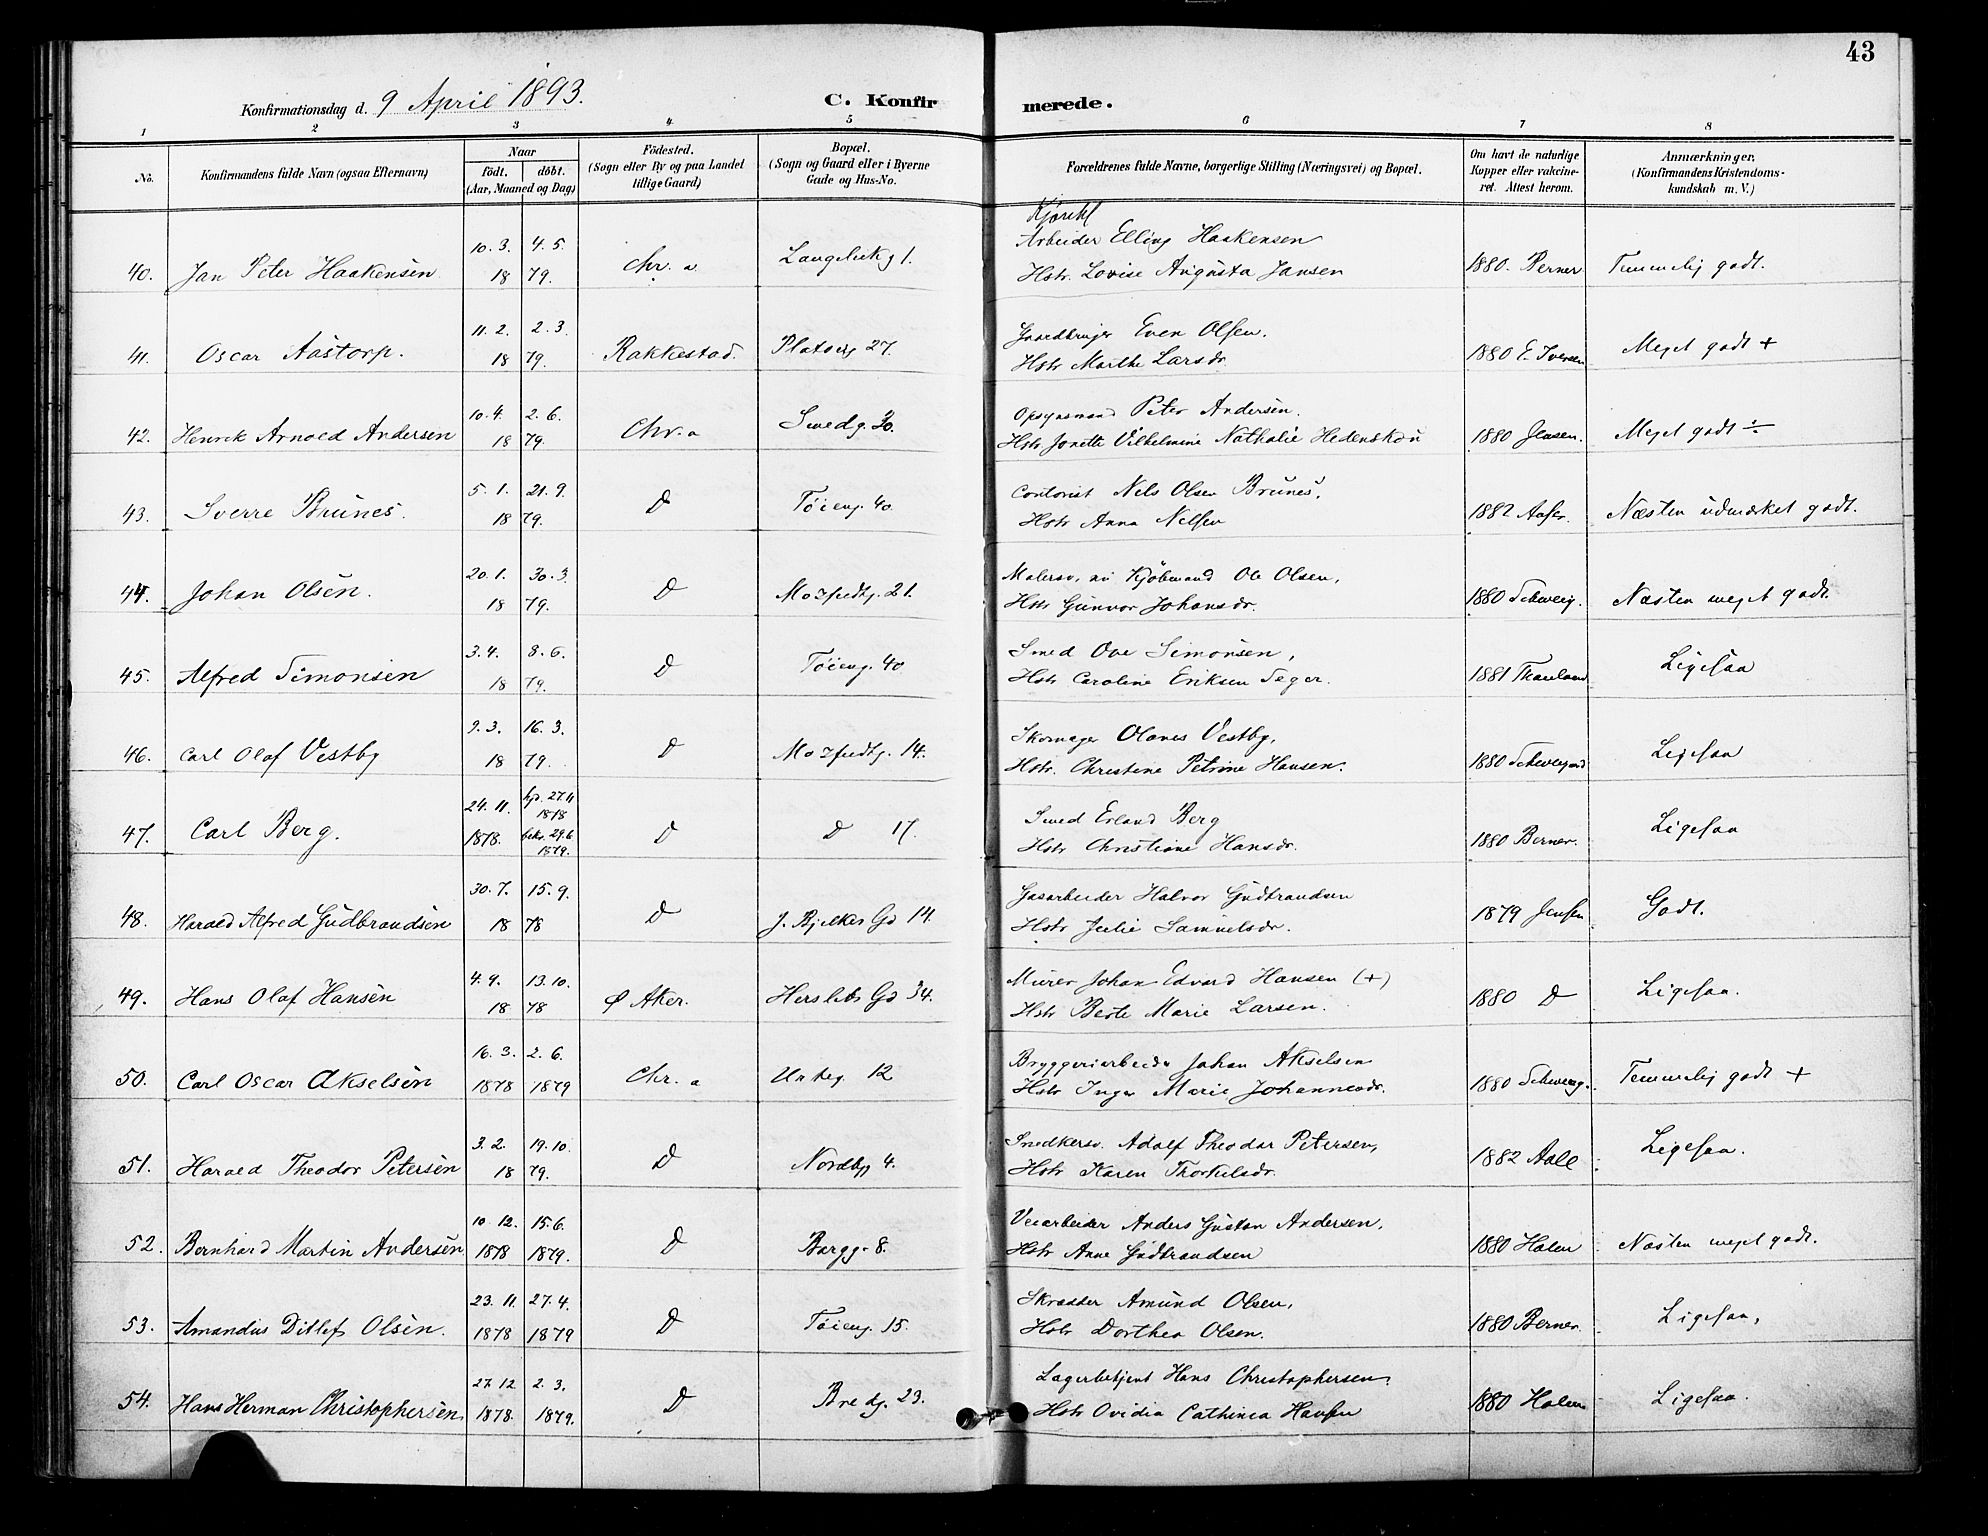 43
Konfirmationsdag d. 9 April 1893.
C. Konfirmerede.
1 2 3 4 5 6 7 8
No. Konfirmandens fulde Navn (ogsaa Efternavn) Naar født. døbt. (Aar, Maaned og Dag) Fødested. (Sogn eller By og paa Landet tillige Gaard) Bopæl. (Sogn og Gaard eller i Byerne Gade og Hus-No. Forældrenes fulde Navne, borgerlige Stilling (Næringsvei) og Bopæl. Om havt de naturlige Kopper eller vaccineret. Attest herom. Anmærkninger. (Konfirmandens Kristendomskundskab m. V.)
10. 3. 4. 5. Arbeider Elling Haakensen
40. Jan Peter Haakensen 18 79. Chr. a Langelikg 1. Hstr. Lovise Augusta Jansen 1880. Berner Temmelig godt.
11. 2. 2. 3. Gaardbruger Even Olsen.
41. Oscar Aastorp. 18 79. Rakkestad. Platoug 27. Hstr Marthe Larsdr. 1880 E. Iversen Meget godt +
10. 4. 2. 6. Opsynsmand Peter Andersen.
42. Henrik Arnold Andersen 18 79. Chr. a Smedg. 30. Hstr Jonette Vilhelmine Nathalie Hedenskou 1880 Jensen. Meget godt ÷
5. 1. 21. 9. Contorist Nels Olsen Brunes,
43. Sverre Brunes. 18 79. D Tøieng. 40. Hstr Anna Nelsen 1882 Næsten udmærket godt.
20. 1. 30. 3. Malersv. Kjøbmand Ole Olsen,
44. Johan Olsen. 18 79. D Mosfeldtg. 21. Hstr Gunvor Johansdr. 1880 Schweig. Næsten meget godt.
3. 4. 8. 6. Smed Ove Simonsen,
45. Alfred Simonsen 18 79. D Tøieng. 40 Hstr Caroline Eriksen Teger. 1881 Thaulow Ligesaa
9. 3. 16. 3. Skomager Olaves Vestby,
46. Carl Olaf Vestby 18 79. D Mosfeldtg. 14. Hstr. Christine Petrine Hansen. 1880 Schweigaard Ligesaa
24. 11. hjd. 27.11 1878 Smed Erland Berg
47. Carl Berg. 1878. bekr. 29.6 1879. D D 17. Hstr Christiane Hansdr. 1880 Berner. Ligesaa
30. 7. 15. 9. Gasarbeider Halvor Gudbrandsen
48. Harald Alfred Gudbrandsen 18 78 D J. Bjelkes Gd 14. Hstr Julie Samuelsdr. 1879 Jensen Godt.
4. 9. 13. 10. Murer Johan Edvard Hansen (+)
49. Hans Olaf Hansen 18 78 Ø Aker. Herslebs Gd 34. Hstr Berte Marie Larsen. 1880 D Ligesaa.
16. 3. 2. 6. Bryggeriarbeider Johan Akselsen
50. Carl Oscar Akselsen 1878 1879 Chr. a Urteg. 12 Hstr Inger Marie Johannesdr. 1880 Schweig. Temmelig godt +
3. 2. 19. 10. Snedkersv. Adolf Theodor Petersen,
51. Harald Theodor Petersen 18 79. D Nordbyg 4. Hstr Karen Thorkelsdr. 1882 Aall Ligesaa.
10. 12. 15. 6. Veiarbeider Anders Gustav Andersen,
52. Bernhard Martin Andersen 1878 1879. D Borgg. 8. Hstr Anne Gudbrandsen 1880 Holm Næsten meget godt.
23. 11. 27. 4. Skrædder Amund Olsen,
53. Amandus Ditlef Olsen. 1878 1879 D Tøieng. 15. Hstr Dorthea Olsen. 1880 Berner Ligesaa,
27. 12 2. 3. Lagerbetjent Hans Christophersen.
54. Hans Herman Christophersen 1878. 1879. D Bredg. 23. Hstr Ovidia Cathinca Hansen 1880 Holm Ligesaa.